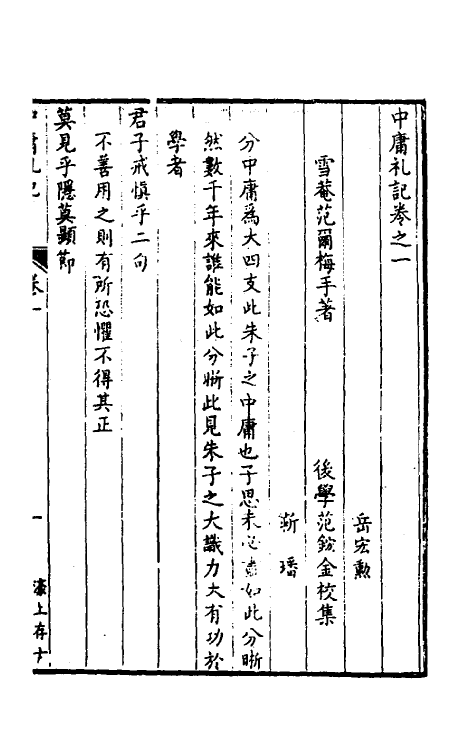 中庸札記卷之一
岳宏勲
雪菴范爾梅手著 後學范鋐金校集
靳璠
分中庸爲大四支此朱子之中庸也子思未必書如此分晰
然數千年來誰能如此分晰此見朱子之大識力大有功於
學者
君子戒慎乎二句
不善用之則有所恐懼不得其正
莫見乎隱莫顯節
中庸札記 卷一 一 濠上存古